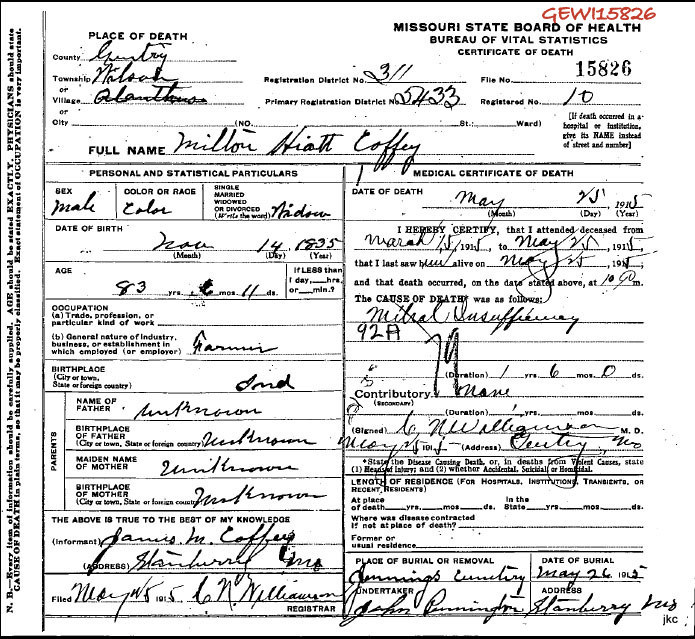 GEWI15826
MISSOURI STATE BOARD OF HEALTH
BUREAU OF VITAL STATISTICS
CERTIFICATE OF DEATH
PLACE OF DEATH
County Gentry
Township Wilson
or
Village Alanthus
or
City (NO. St.; Ward)
Registration District No. 311 File No. 15826
Primary Registration District No. 5433 Registered No. 10
[If death occurred in a
hospital or institution,
give its NAME instead
of street and number]
FULL NAME Milton Hiatt Coffey
PERSONAL AND STATISTICAL PARTICULARS
SEX
Male
COLOR OR RACE
Color
SINGLE
MARRIED
WIDOWED
OR DIVORCED
(Write the word) Widow
DATE OF BIRTH
Nov 14 1835
(Month) (Day) (Year)
AGE
83 yrs. 6 mos. 11 ds.
If LESS than
1 day, hrs.
or min.?
OCCUPATION
(a) Trade, profession, or
particular kind of work
(b) General nature of industry,
business, or establishment in
which employed (or employer) Farmer
BIRTHPLACE
(City or town,
State or foreign country) Ind
PARENTS
NAME OF
FATHER Unknown
BIRTHPLACE
OF FATHER
(City or town, State or foreign country) Unknown
MAIDEN NAME
OF MOTHER Unknown
BIRTHPLACE
OF MOTHER
(City or town, State or foreign country) Unknown
THE ABOVE IS TRUE TO THE BEST OF MY KNOWLEDGE
(Informant) James M. Coffey
(ADDRESS) Stanberry Mo
Filed May 25 1915 C N Williamson
REGISTRAR
MEDICAL CERTIFICATE OF DEATH
DATE OF DEATH
May 25, 1915
(Month) (Day) (Year)
I HEREBY CERTIFY, that I attended deceased from
March 15 1915, to May 25, 1915
that I last saw him alive on May 25, 1915,
and that death occurred, on the date stated above, at 10 P m.
The CAUSE OF DEATH* was as follows:
Mitral Insufficiency
92A
79
(Duration) 1 yrs 6 mos. 0 ds.
Contributory None
(SECONDARY)
(Duration) yrs. mos. ds.
(Signed) C N Williamson M. D.
May 25 1915 (Address) Gentry, Mo
*State the Disease Causing Death, or, in deaths from Violent Causes, state
(1) Means of Injury; and (2) whether Accidental, Suicidal or Homicidal.
LENGTH OF RESIDENCE (FOR HOSPITALS, INSTITUTIONS, TRANSIENTS, OR
RECENT RESIDENTS)
At place
of death yrs. mos. ds.
In the
State yrs. mos. ds.
Where was disease contracted
if not at place of death?
Former or
usual residence
PLACE OF BURIAL OR REMOVAL
Jennings Cemetery
DATE OF BURIAL
May 26 1915
UNDERTAKER
John Pennington
ADDRESS
Stanberry Mo
jkc
N. B.—Every item of information should be carefully supplied. AGE should be stated EXACTLY. PHYSICIANS should state
CAUSE OF DEATH in plain terms, so that it may be properly classified. Exact statement of OCCUPATION is very important.